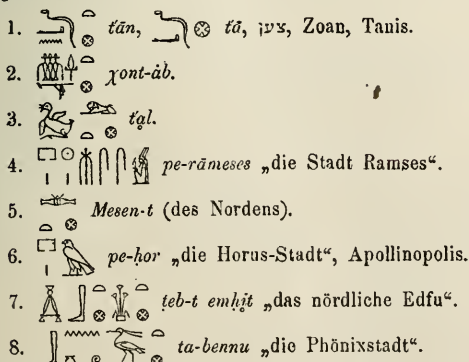 1. ṭān, ṭā, צען, Zoan, Tanis.
2. χont-àb.
3. ṭạl.
4. pe-rāmeses „die Stadt Ramses“.
5. Mesen-t (des Nordens).
6. pe-ḥor „die Horus-Stadt“, Apollinopolis.
7. ṭeb-t emḥịt „das nördliche Edfu“.
8. ta-bennu „die Phönixstadt“.